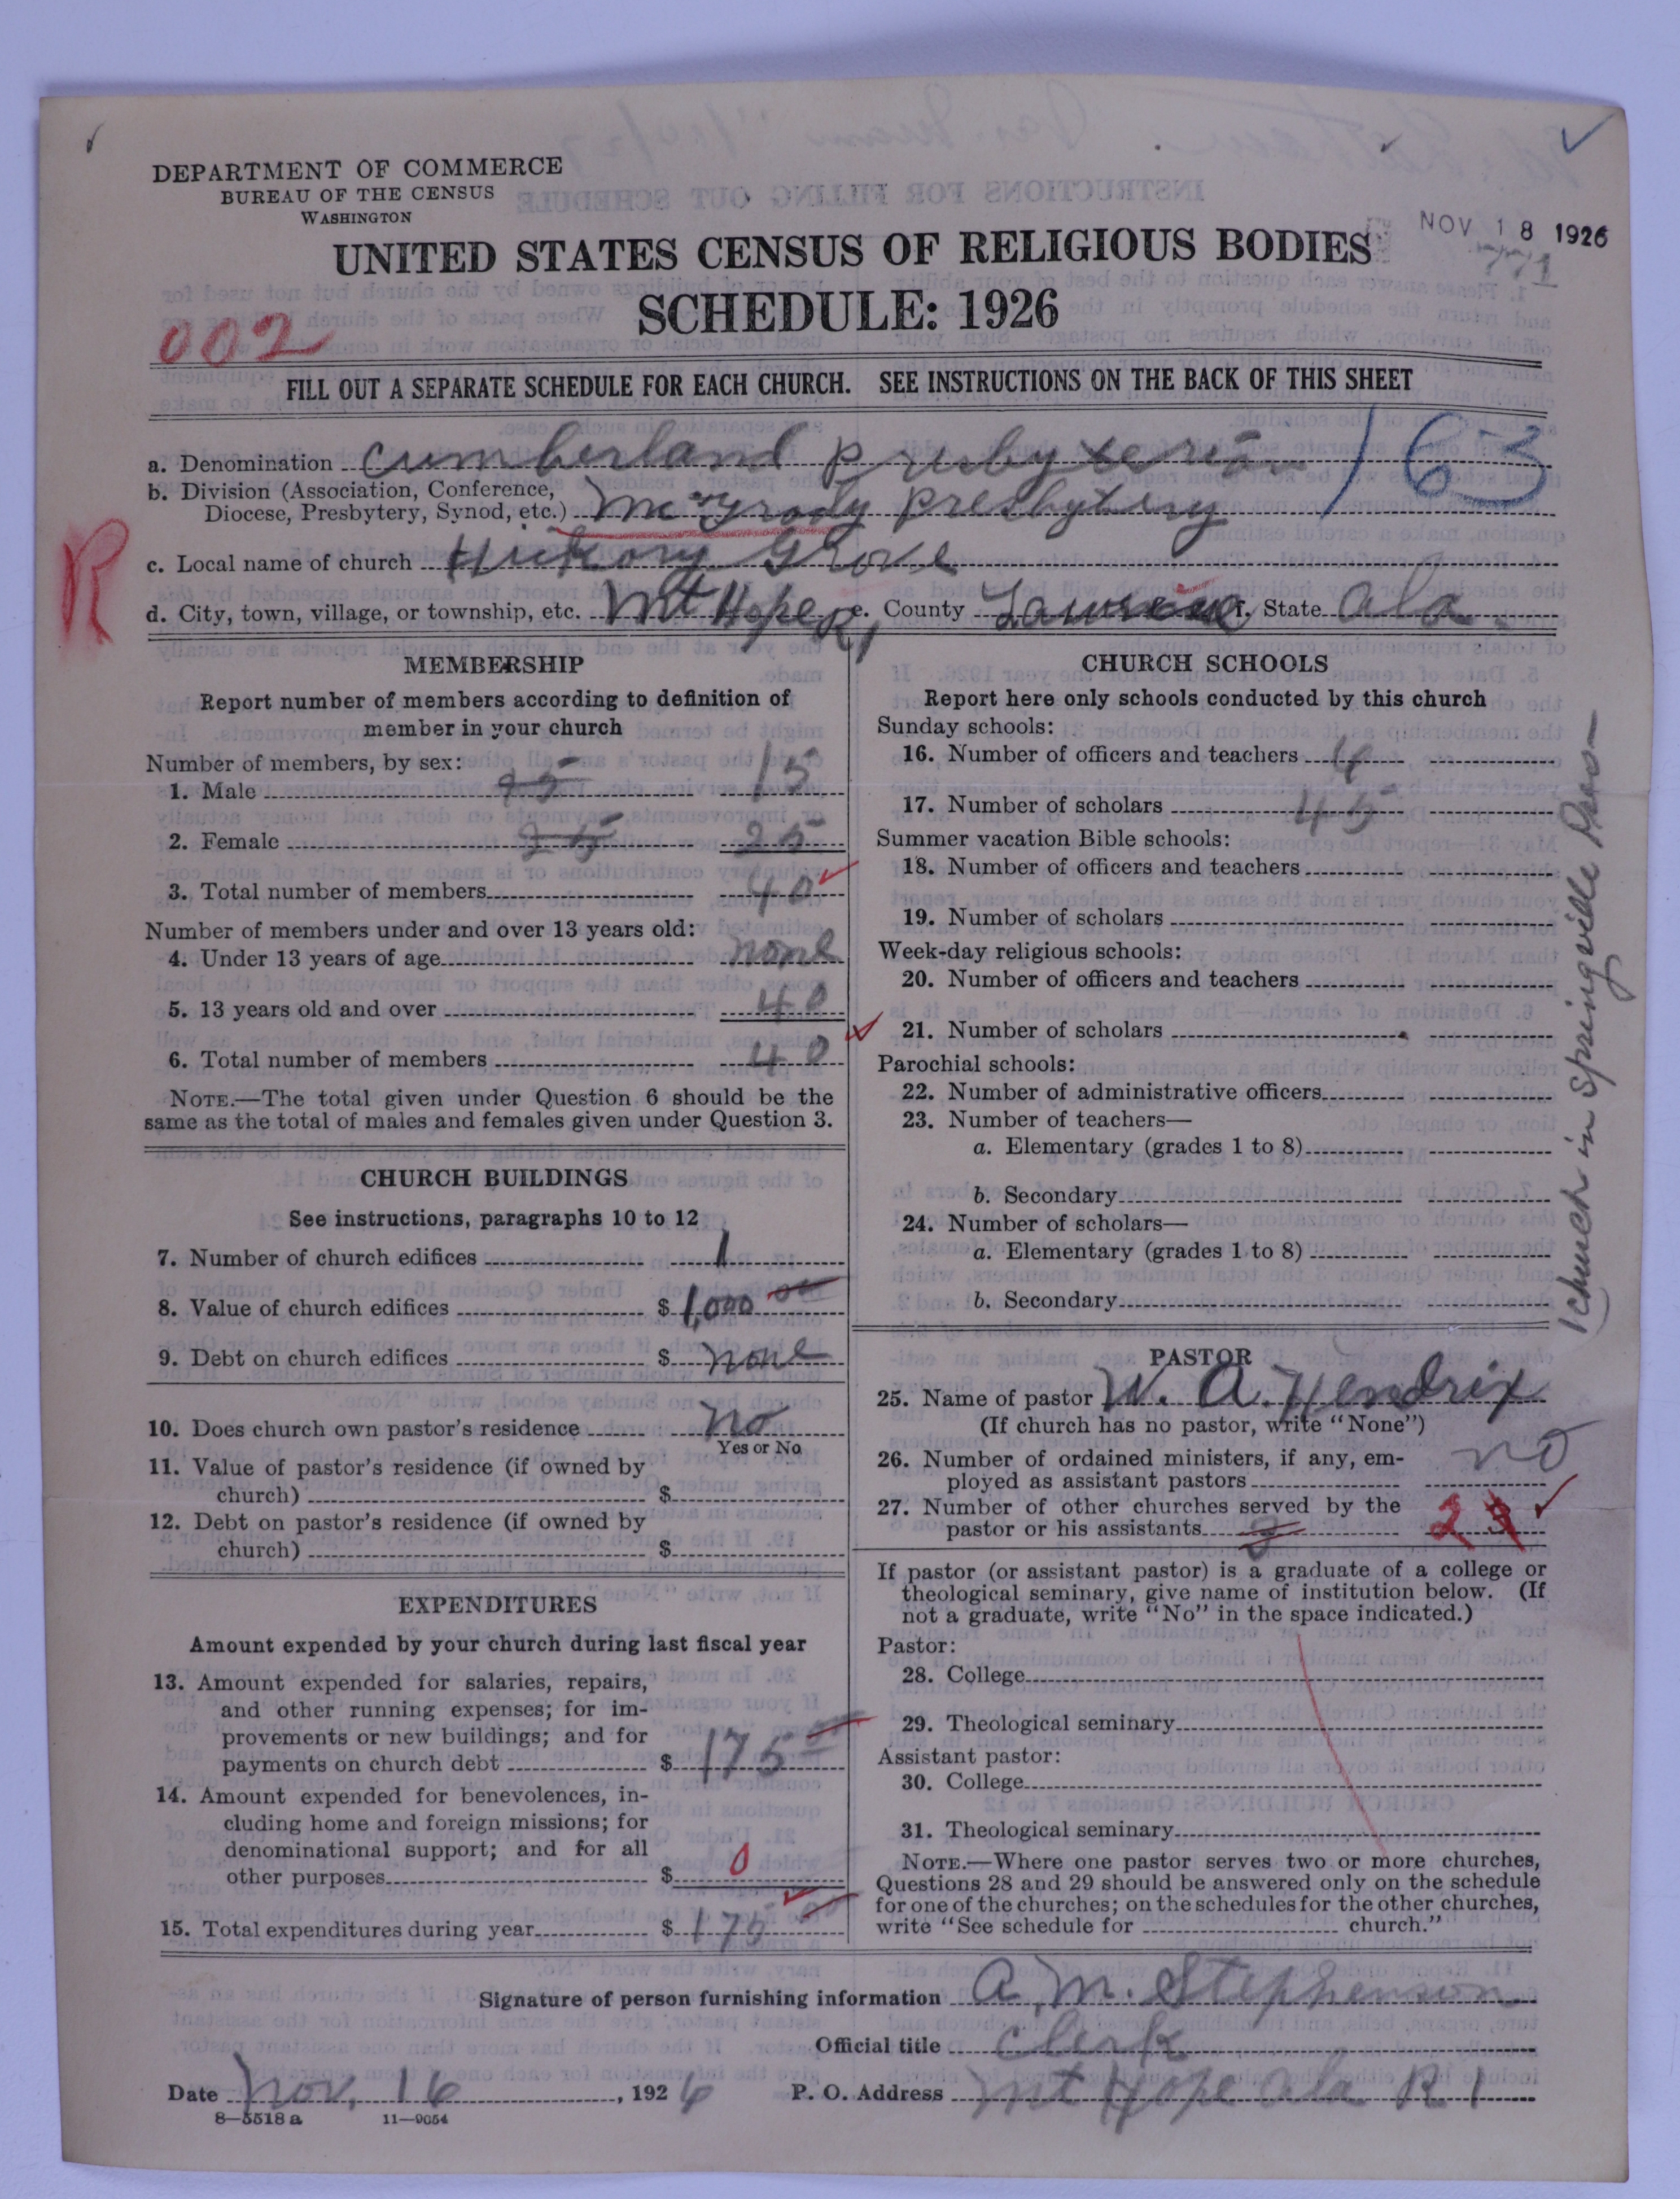 DEPARTMENT OF COMMERCE
BUREAU OF THE CENSUS
WASHINGTON
NOV 18 1926
UNITED STATES CENSUS OF RELIGIOUS BODIES
SCHEDULE: 1926
002
FILL OUT A SEPARATE SCHEDULE FOR EACH CHURCH. SEE INSTRUCTIONS ON THE BACK OF THIS SHEET
a. Denomination Cumberland Presbyterian 163
b. Division (Association, Conference,
Diocese, Presbytery, Synod, etc.) McGrady Presbytery
R
c. Local name of church Hickory Grove
d. City, town, village, or township, etc. Mt Hope R1 e. County Lawrence f. State Ala.
MEMBERSHIP
Report number of members according to definition of
member in your church
Number of members, by sex:
1. Male 15
2. Female 25 25
3. Total number of members 40
Number of members under and over 13 years old:
4. Under 13 years of age none
5. 13 years old and over 40
6. Total number of members 40
NOTE.—The total given under Question 6 should be the
same as the total of males and females given under Question 3.
CHURCH BUILDINGS
See instructions, paragraphs 10 to 12
7. Number of church edifices 1
8. Value of church edifices $ 1,000 00
9. Debt on church edifices $ none
10. Does church own pastor's residence no
Yes or No
11. Value of pastor's residence (if owned by
church) $
12. Debt on pastor's residence (if owned by
church) $
EXPENDITURES
Amount expended by your church during last fiscal year
13. Amount expended for salaries, repairs,
and other running expenses; for im-
provements or new buildings; and for
payments on church debt $ 175 00
14. Amount expended for benevolences, in-
cluding home and foreign missions; for
denominational support; and for all
other purposes $ 0
15. Total expenditures during year $ 175 00
CHURCH SCHOOLS
Report here only schools conducted by this church
Sunday schools:
16. Number of officers and teachers 4
17. Number of scholars 45
Summer vacation Bible schools:
18. Number of officers and teachers
19. Number of scholars
Week-day religious schools:
20. Number of officers and teachers
21. Number of scholars
Parochial schools:
22. Number of administrative officers
23. Number of teachers—
a. Elementary (grades 1 to 8)
b. Secondary
24. Number of scholars—
a. Elementary (grades 1 to 8)
b. Secondary
1 church in Springville Pres—
PASTOR
25. Name of pastor W. A. Hendrix
(If church has no pastor, write "None")
26. Number of ordained ministers, if any, em-
ployed as assistant pastors no
27. Number of other churches served by the
pastor or his assistants 3 2 3
If pastor (or assistant pastor) is a graduate of a college or
theological seminary, give name of institution below. (If
not a graduate, write "No" in the space indicated.)
Pastor:
28. College
29. Theological seminary
Assistant pastor:
30. College
31. Theological seminary
NOTE.—Where one pastor serves two or more churches,
Questions 28 and 29 should be answered only on the schedule
for one of the churches; on the schedules for the other churches,
write "See schedule for church."
Signature of person furnishing information A. M. Stephenson
Official title Clerk
Date Nov. 16, 1926 P. O. Address Mt Hope Ala R 1
8—5518 a 11—9054